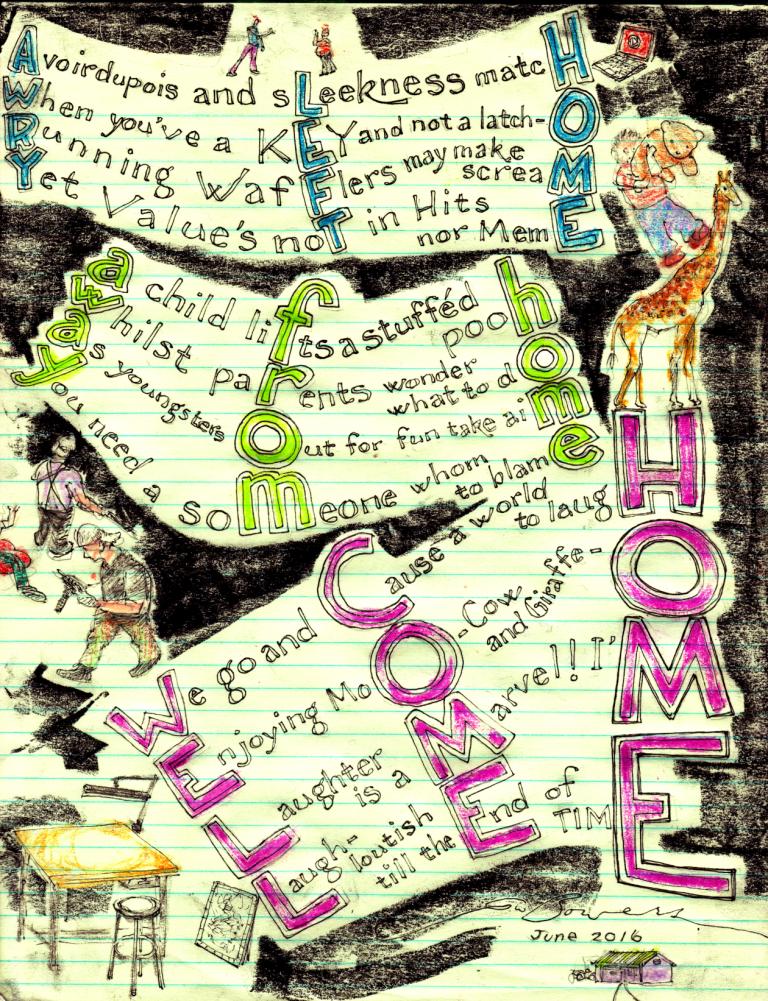 Avoirdupois and sLeekness matcH
When you've a KEY and not a latch-O
Running WafFlers may make screaM
Yet Value's noT in Hits nor MemE
a child lifts a stufféd pooh
whilst parents wonder what to do
as youngsters out for fun take aim
you need a someone whom to blame
We go and Cause a world to laugH
Enjoying MoO-Cow and Giraffe-O
Laughter is a Marvel!! I'M
Laugh-loutish till the End of TIME
Bowers
June 2016